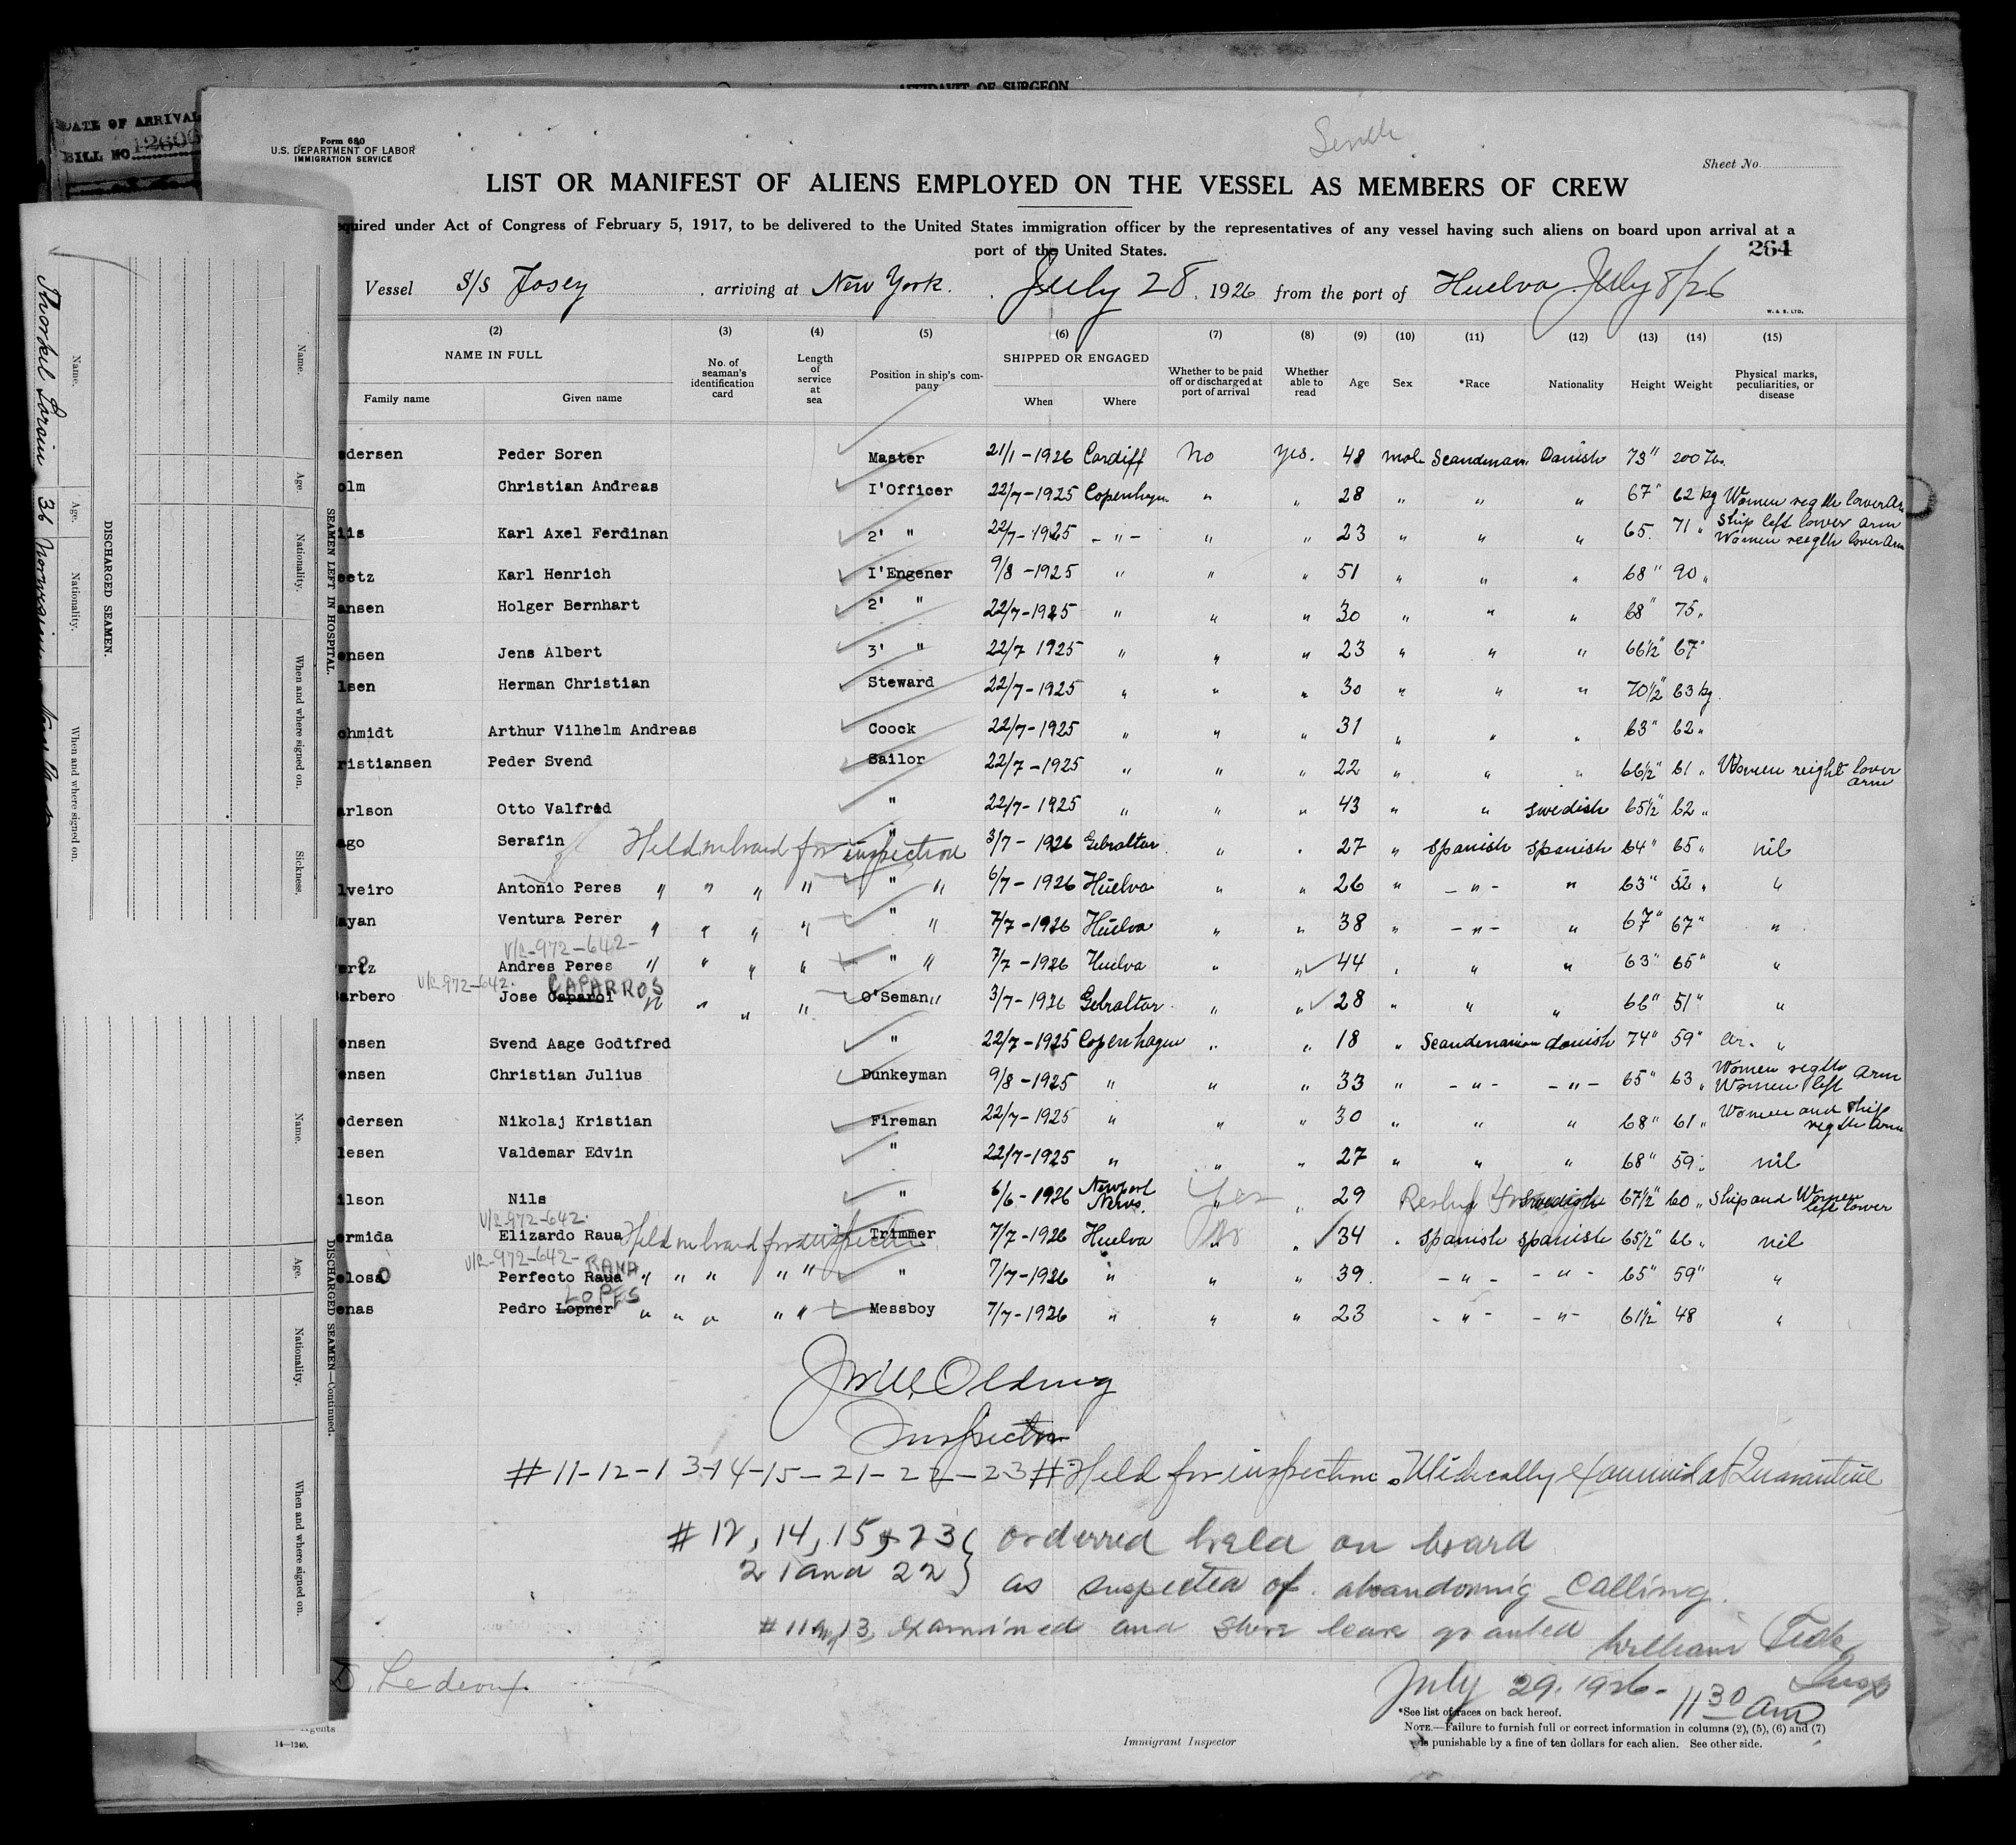 AFFIDAVIT OF SURGEON
DATE OF ARRIVAL
BILL NO. 12606
Form 680
U.S. DEPARTMENT OF LABOR
IMMIGRATION SERVICE
Sheet No.
LIST OR MANIFEST OF ALIENS EMPLOYED ON THE VESSEL AS MEMBERS OF CREW
equired under Act of Congress of February 5, 1917, to be delivered to the United States immigration officer by the representatives of any vessel having such aliens on board upon arrival at a
port of the United States.
264
Vessel S/S Josey, arriving at New York. July 28, 1926 from the port of Huelva July 8/26
W. & S. LTD.
(2) (3) (4) (5) (6) (7) (8) (9) (10) (11) (12) (13) (14) (15)
NAME IN FULL No. of seaman's identification card Length of service at sea Position in ship's company SHIPPED OR ENGAGED Whether to be paid off or discharged at port of arrival Whether able to read Age Sex *Race Nationality Height Weight Physical marks, peculiarities, or disease
Family name Given name When Where
dersen Peder Soren Master 21/1-1926 Cardiff No Yes. 48 male Scandinavi Danish 73" 200 lbs.
olm Christian Andreas I'Officer 22/7-1925 Copenhagen " " 28 " " " 67" 62 kg Women regth lower Arm
iis Karl Axel Ferdinan 2' " 22/7-1925 - " - " " 23 " " " 65. 71 " Ship left lower arm
Women reegth lover arm
eetz Karl Henrich I'Engener 9/8-1925 " " " 51 " " " 68" 90 "
ansen Holger Bernhart 2' " 22/7-1925 " " " 30 " " " 68" 75 "
ensen Jens Albert 3' " 22/7 1925 " " " 23 " " " 66½" 67"
lsen Herman Christian Steward 22/7-1925 " " " 30 " " " 70½" 63 kg.
chmidt Arthur Vilhelm Andreas Coock 22/7-1925 " " " 31 " " " 63" 62 "
ristiansen Peder Svend Sailor 22/7-1925 " " " 22 " " " 66½" 61 " Women reight lover
arm
arlson Otto Valfred " 22/7-1925 " " " 43 " " Swedish 65½" 62 "
ago Serafin Held on board for inspection " 3/7-1926 Gebraltar " " 27 " Spanish Spanish 64" 65 " nil
lveiro Antonio Peres " " " " " " 6/7-1926 Huelva " " 26 " - " - " 63" 52 " "
ayan Ventura Perer " " " " " " 7/7-1926 Huelva " " 38 " - " - " 67" 67" "
V/L-972-642-
eriz Andres Peres " " " " " " 7/7-1926 Huelva " " 44 " " " 63" 65" "
V/L-972-642. CAPARROS
arbero Jose Caparol " " " " O'Seman " 3/7-1926 Gebraltar " " 28 " " " 66" 51" "
ensen Svend Aage Godtfred " 22/7-1925 Copenhagen " " 18 " Scandinavian danish 74" 59" ar. "
ensen Christian Julius Dunkeyman 9/8-1925 " " " 33 " - " - - " - 65" 63 " Women regth arm
Women left
edersen Nikolaj Kristian Fireman 22/7-1925 " " " 30 " " " 68" 61 " Women and Ship
regth Arm
lesen Valdemar Edvin " 22/7-1925 " " " 27 " " " 68" 59 " nil
ilson Nils " 6/6-1926 Newport News. Yes " 29 Swedish 67½" 60 " Ship and Women
left lower
V/L-972-642.
ermida Elizardo Raua Held on board for inspection Trimmer 7/7-1926 Huelva No " 34 " Spanish Spanish 65½" 66 " nil
V/L-972-642- RAUA
elosa O Perfecto Raua " " " " " " 7/7-1926 " " " 39. - " - - " - 65" 59" "
LOPES
enas Pedro Lopner " " " " " Messboy 7/7-1926 " " " 23 - " - - " - 61½" 48 "
Olding
Inspector
#11-12-13-14-15-21-22-23# Held for inspection. Medically examined at Quarantine
#12, 14, 15, 23 } ordered held on board
21 and 22 } as suspected of abandoning calling.
#11 and 13, examined and shore leave granted William
July 29. 1926- 11 30 am Insp
D. Ledoux
*See list of races on back hereof.
NOTE.—Failure to furnish full or correct information in columns (2), (5), (6) and (7)
is punishable by a fine of ten dollars for each alien. See other side.
Immigrant Inspector
gents
14—1240.
SEAMEN LEFT IN HOSPITAL.
Name. Age. Nationality. When and where signed on. Sickness.
DISCHARGED SEAMEN.
Name. Age. Nationality. When and where signed on.
Thorkel Larsin 36 Norwegian
DISCHARGED SEAMEN—Continued.
Name. Age. Nationality. When and where signed on.